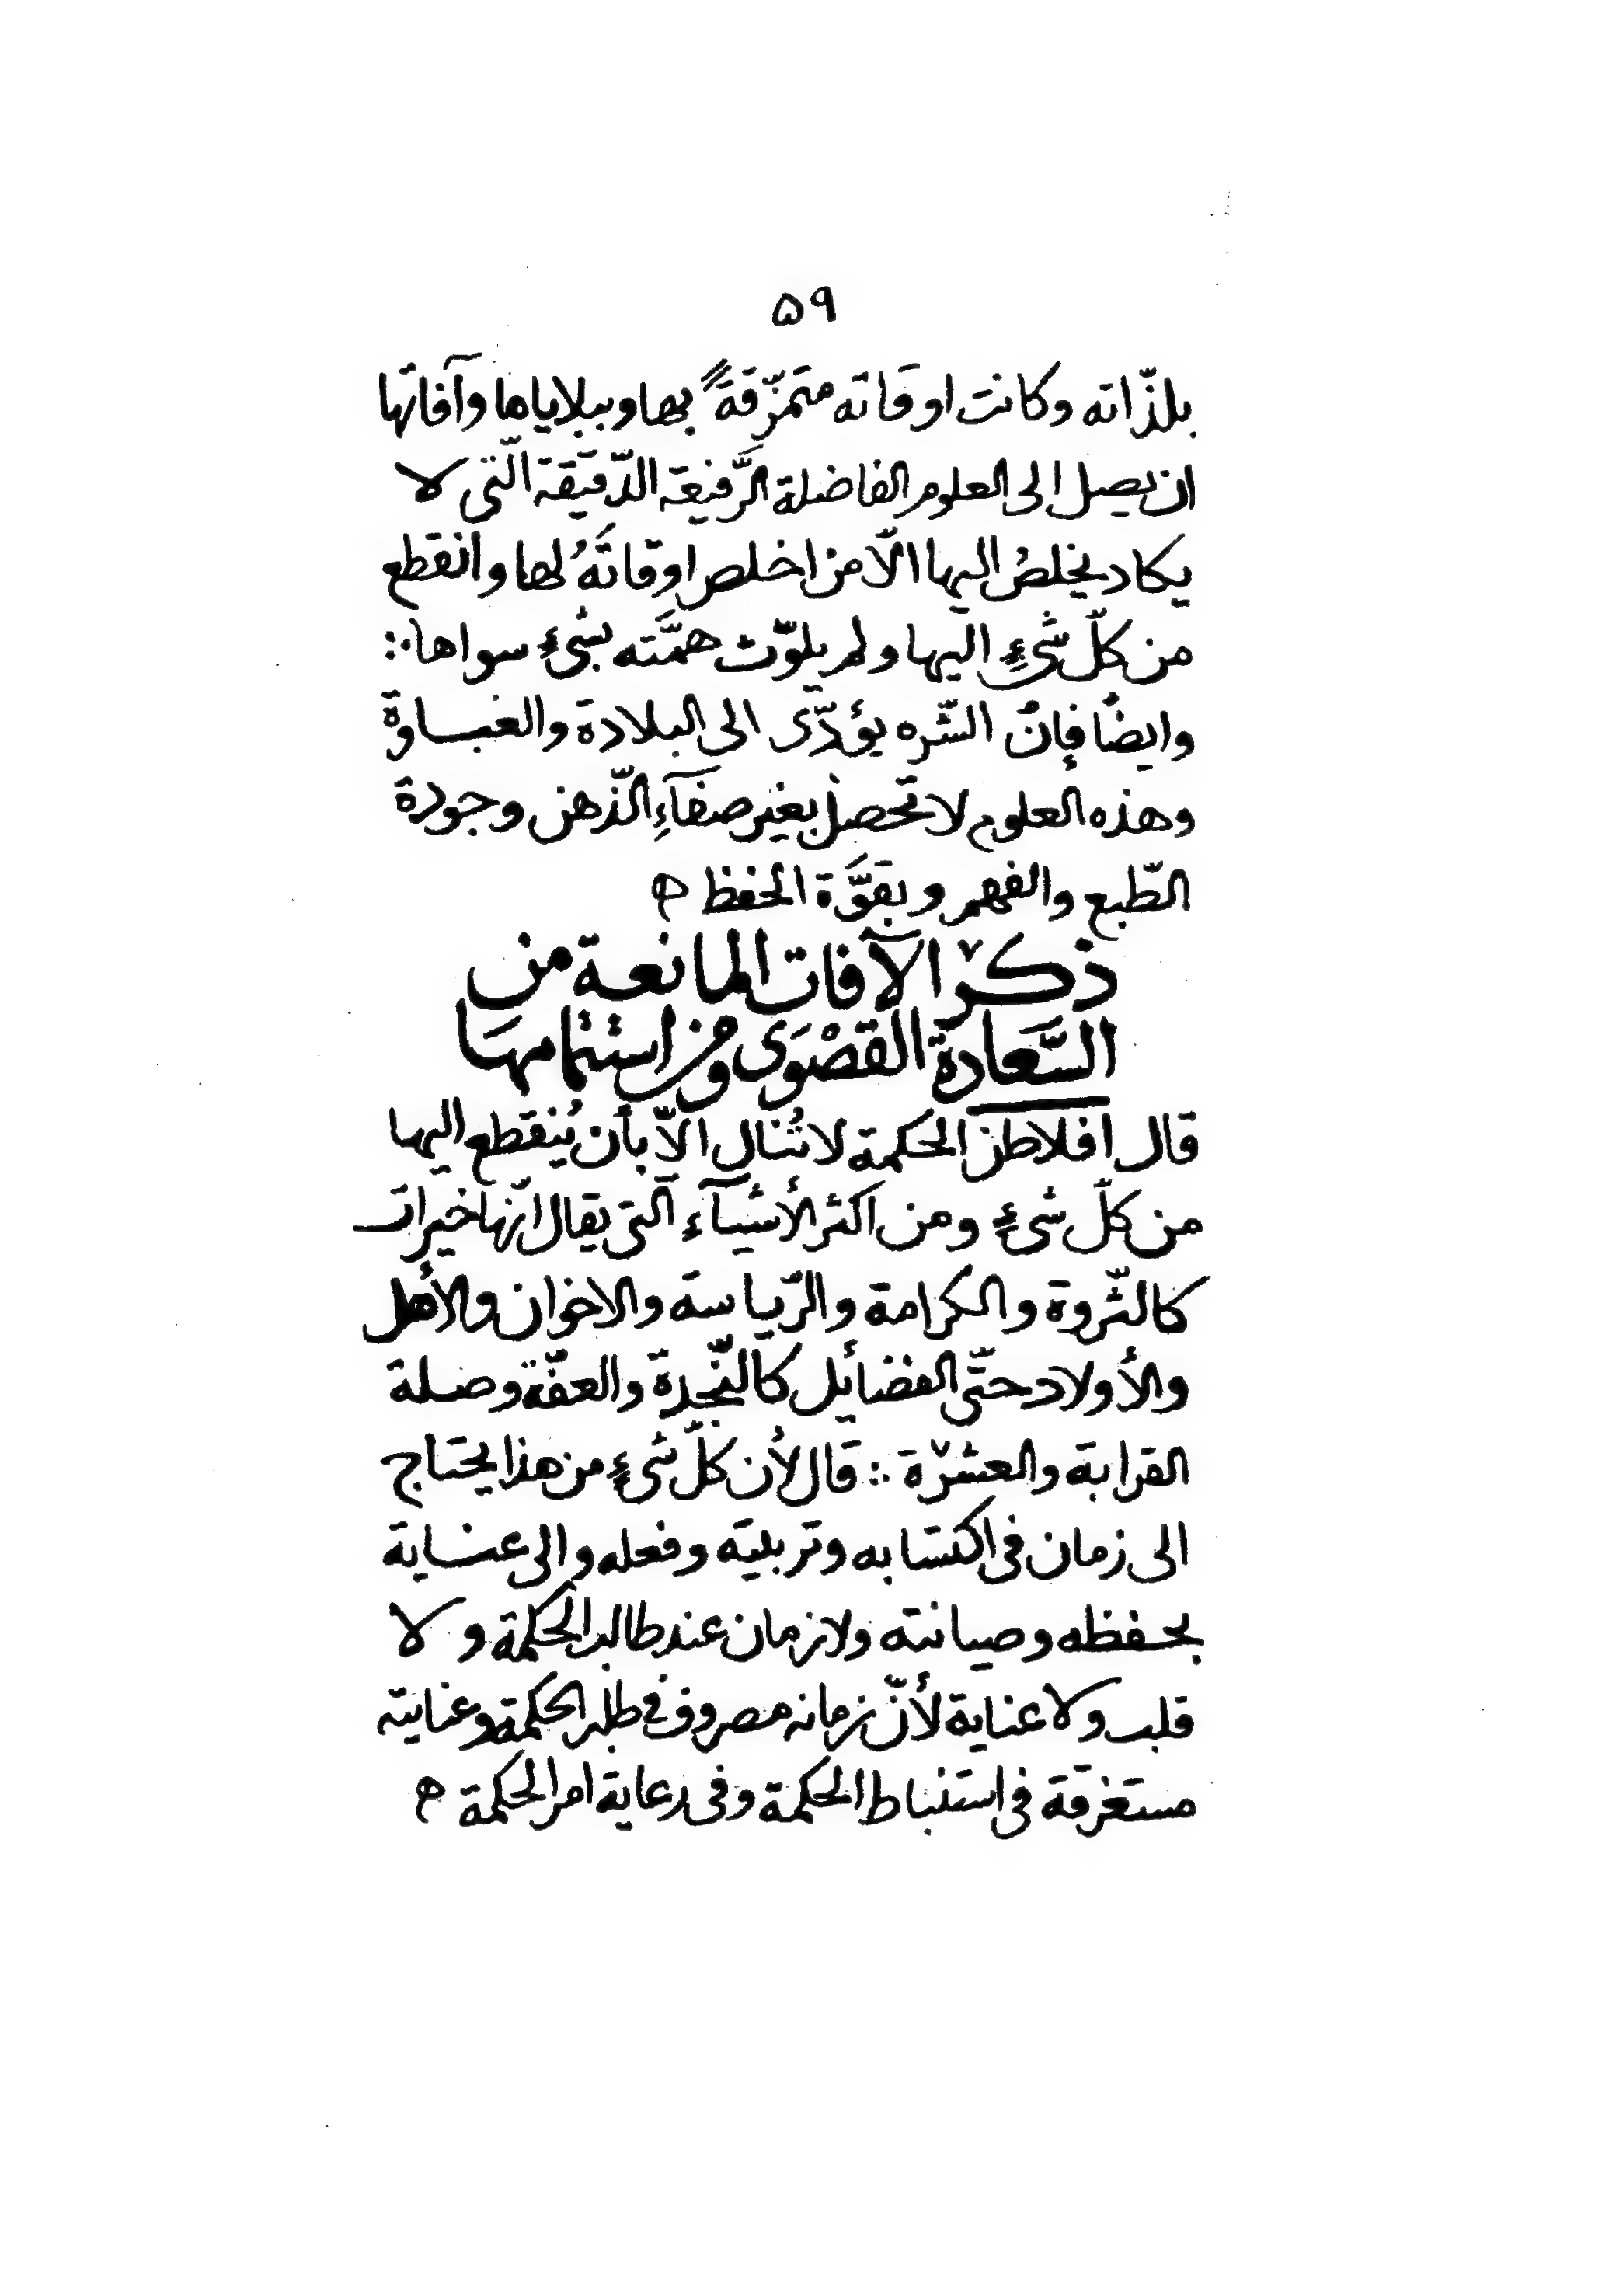 ۵۹
بلذّاته وكانت اوقاته متمزّقةً بها وببلاياها وآفاتها
ان يصل الى العلوم الفاضلة الرَّفيعة الدّقيقة الّتى لا
يكاد يخلصُ اليها الّا من اخلص اوقاتَهُ لها وانقطع
من كلّ شىءٍ اليها ولم يلوّث همَّته بشىءٍ سواها ∴
وايضًا فإنّ الشّره يؤدّى الى البلادة والغباوة
وهذه العلوم لا تحصل بغير صفآءِ الذّهن وجودة
الطّبع والفهم وبقوَّة الحفظ ه
ذكر الآفات المانعة من
السَّعادة القصْوَى ومن استتمامها
قال افلاطن الحكمة لا تُنال الاّ بأن يُنقطع اليها
من كلّ شىءٍ ومن اكثر الأشيآء الّتى يقال انّها خيرات
كالثّروة والكرامة والرّياسة والاخوان والأهل
والأولاد حتّى الفضائل كالنّجدة والعفّة وصلة
القرابة والعشرة ∴ قال لأن كلّ شىءٍ من هذا يحتاج
الى زمان فى اكتسابه وتربيته وفعله والى عناية
بحفظه وصيانته ولا زمان عند طالب الحكمة ولا
قلب ولا عناية لأنّ زمانه مصروف فى طلب الحكمة وعنايته
مستغرقة فى استنباط الحكمة وفى رعاية امر الحكمة ه